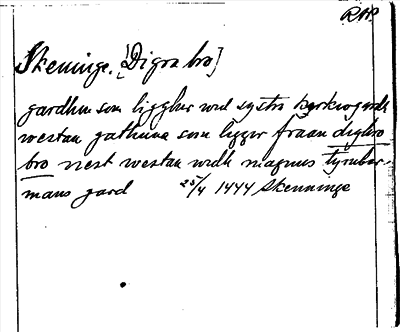 RAP.
Skeninge. [Digra bro]
gardhin som liggher wid systra kyrkiogardh
westan gathuna som ligger fraan dighro
bro nest westan widh magnus tymber-
mans gard 25/4 1444 Skenninge